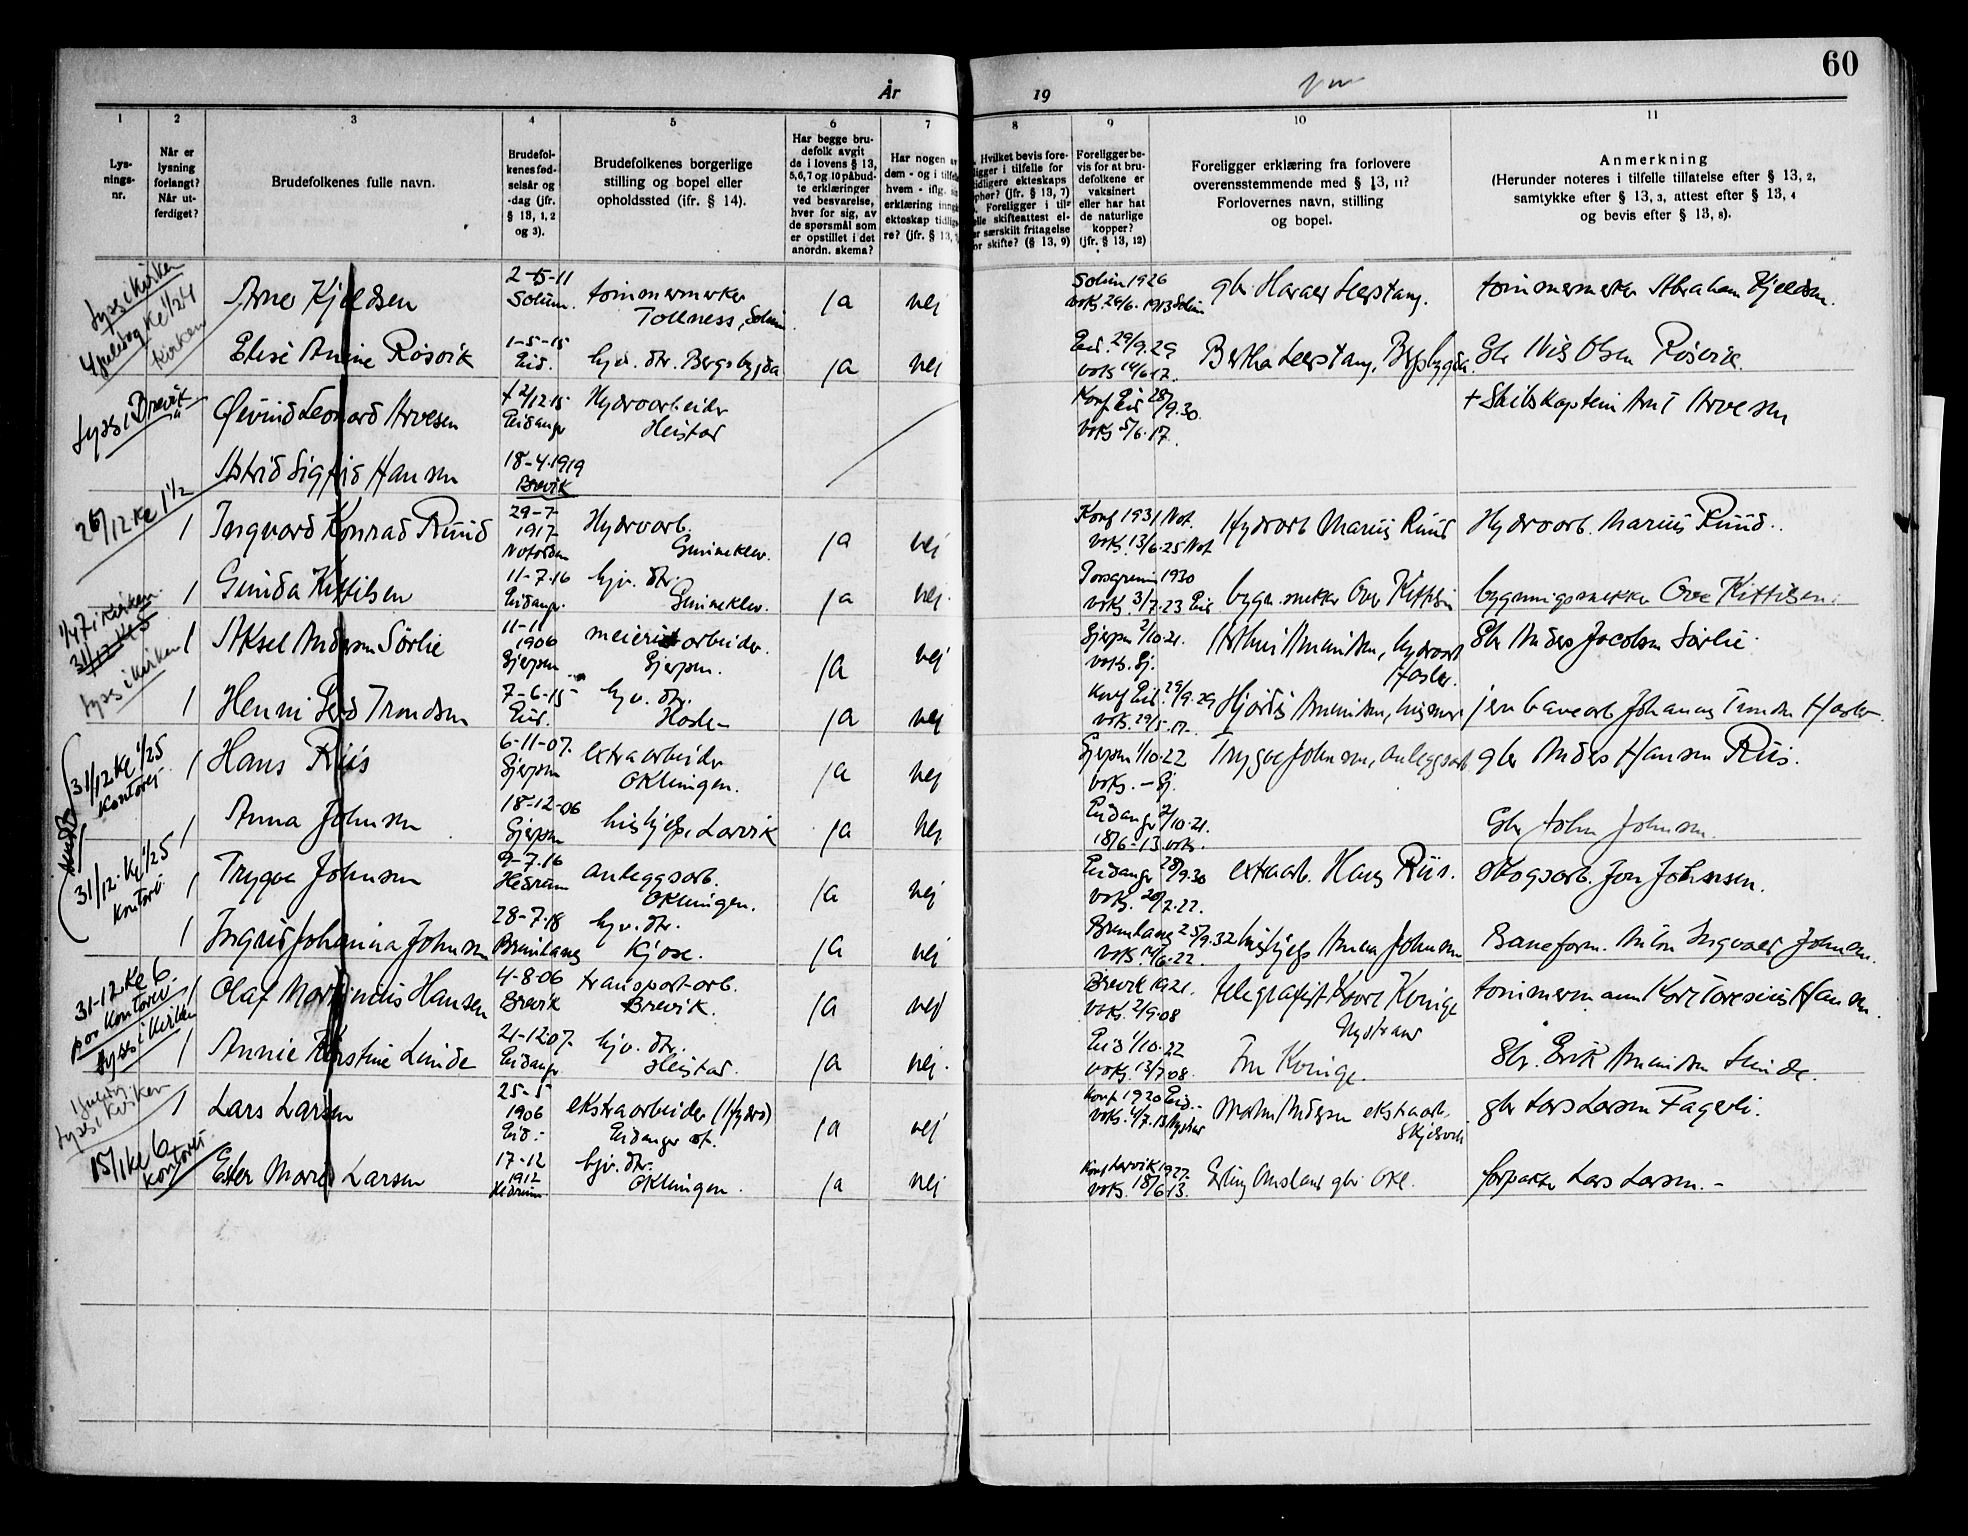 60
År 19
1 2 3 4 5 6 7 8 9 10 11
Lys-
nings-
nr.
Når er
lysning
forlangt?
Når ut-
ferdiget?
Brudefolkenes fulle navn.
Brudefol-
kenes fød-
selsår og
-dag (jfr.
§ 13, 1, 2
og 3).
Brudefolkenes borgerlige
stilling og bopel eller
opholdssted (ifr. § 14).
Har begge bru-
defolk avgit
de i lovens § 13,
5, 6, 7 og 10 påbud-
te erklæringer
ved besvarelse,
hver for sig, av
de spørsmål som
er opstillet i det
anordn. skema?
Har nogen av
dem - og i tilfelle
hvem - iflg. sin
erklæring inngått
ekteskap tidlige-
re? (jfr. § 13,
Hvilket bevis fore-
ligger i tilfelle for
tidligere ekteskaps
ophør? (jfr. § 13, 7)
Foreligger i til-
elle skifteattest el-
er særskilt fritagelse
for skifte? (§ 13, 9)
Foreligger be-
vis for at bru-
defolkene er
vaksinert
eller har hat
de naturlige
kopper?
(jfr. § 13, 12)
Foreligger erklæring fra forlovere
overensstemmende med § 13, 11?
Forlovernes navn, stilling
og bopel.
Anmerkning
(Herunder noteres i tilfelle tillatelse efter § 13, 2,
samtykke efter § 13, 3, attest efter § 13, 4
og bevis efter § 13, 8).
lyses i kirken
4 juledag Ke 1/2 4
kirken
Arne Kjeldsen
2-5-11
Solum
tømmermerker
Tollness, Solum
ja
nei
Solum 1926
vaks. 24/6. 1913 Solum
gbr Harald Leerstang.
tømmermerker Abraham Kjeldsen.
Elise Anine Røsvik
1-5-15
Eid.
hjv. dtr. Bergsbygda
ja
nei
Eid. 29/9.29
vaks 14/6.17.
Bertha Leerstang, Bergsbygda
Gbr Nils Olsen Røsvik.
lyses i Brevik
Øivind Leonard Arvesen
12/12.15
Eidanger
Hydroarbeider
Heistad
Konf Eid 28/9.30.
vaks 5/6.17.
+ Skibskaptein Arnt Arvesen
Astrid Sigfrid Hansen
18-4.1919
Brevik
26/12 Ke 1 1/2
1
Ingvard Konrad Ruud
29-7-
1917
Notodden
Hydroarb.
Gunneklev.
ja
nei
Konf 1931 Not.
vaks. 13/6.25 Not
Hydroarb Marius Ruud
Hydroarb. Marius Ruud.
1
Gunda Kittilsen
11-7.16
Eidanger
hjv. dtr.
Gunneklev.
ja
nei.
Porsgrunn 1930
vaks. 3/7.23 Eid
bygn. snekker Ove Kittilsen
bygningssnekker Ove Kittilsen.
1/4 7 i kirken.
31/12 Ke 5
lyses i kirken
1
Aksel Andersen Sørlie
11-11
1906
Gjerpen
meieriarbeider.
Gjerpen.
ja
nei
Gjerpen 2/10.21.
vaks. Gj.
Arthur Amundsen, hydroarb
Gbr Anders Jacobsen Sørlie
1
Henni Gerd Trondsen
7-6-15
Eid.
hjv. dtr.
ja
nei
Konf Eid. 29/9.29
vaks. 29/5.17.
Hjørdis Amundsen, husmor
jernbanearb Johannes Trondsen
31/12 Ke 1/2 5
kontoret
1
Hans Riis
6-11-07.
Gjerpen
extraarbeider
Oklungen.
ja
nei
Gjerpen 1/10.22
vaks. - Gj.
Trygve Johnsen, anleggsarb
gbr Anders Hansen Riis.
1
Anna Johnsen
18-12-06
Gjerpen
hushjelp, Larvik
ja
nei
Eidanger 2/10.21.
18/6-13. vaks.
Gbr John Johnsen.
31/12. Ke 1/2 5
kontoret
1
Trygve Johnsen
9-7.16
Hedrum
anleggsarb.
Oklungen.
ja
nei
Eidanger 28/9.30
vaks. 20/7.22.
extraarb. Hans Riis.
skogsarb. Jon Johnsen.
1
Ingrid Johanna Johnsen
28-7.18
Brunlanes
hjv. dtr.
Kjose.
ja
nei
Brunlanes 25/9.32
vaks. 14/6.22.
hushjelp Anna Johnsen
Baneform. Anton Ingvald Johnsen.
31-12. Ke 6
paa kontoret.
lyses i kirken
1
Olaf Martinius Hansen
4-8-06
Brevik
transportarb.
Brevik.
ja
nei
Brevik 1921.
vaks. 2/9.08
telegrafist Kaare Kvinge
Nystrand
tømmermann Karl Toresius Hansen.
1
Annie Kirstine Lunde
21-12.07.
Eidanger
hjv. dtr.
Heistad.
ja
nei.
Eid 1/10.22
vaks. 13/7.08.
Fru Kvinge.
Gbr. Erik Amundsen Lunde.
lyses i kirken
1
Lars Larsen
25-5
1906
Eid.
ekstraarbeider (Hydro)
Eidanger st.
ja
nei
Konf 1920 Eid.
ekstraarb.
gbr Lars Larsen Fagerli.
15/1 Ke 6
kontoret.
Ester Marie Larsen
17-12
1912
Hedrum
hjv. dtr.
Oklungen.
ja
nei
Konf Larvik 1927.
vaks. 18/6.13.
Erling Omsland gbr
forpakter Lars Larsen.-